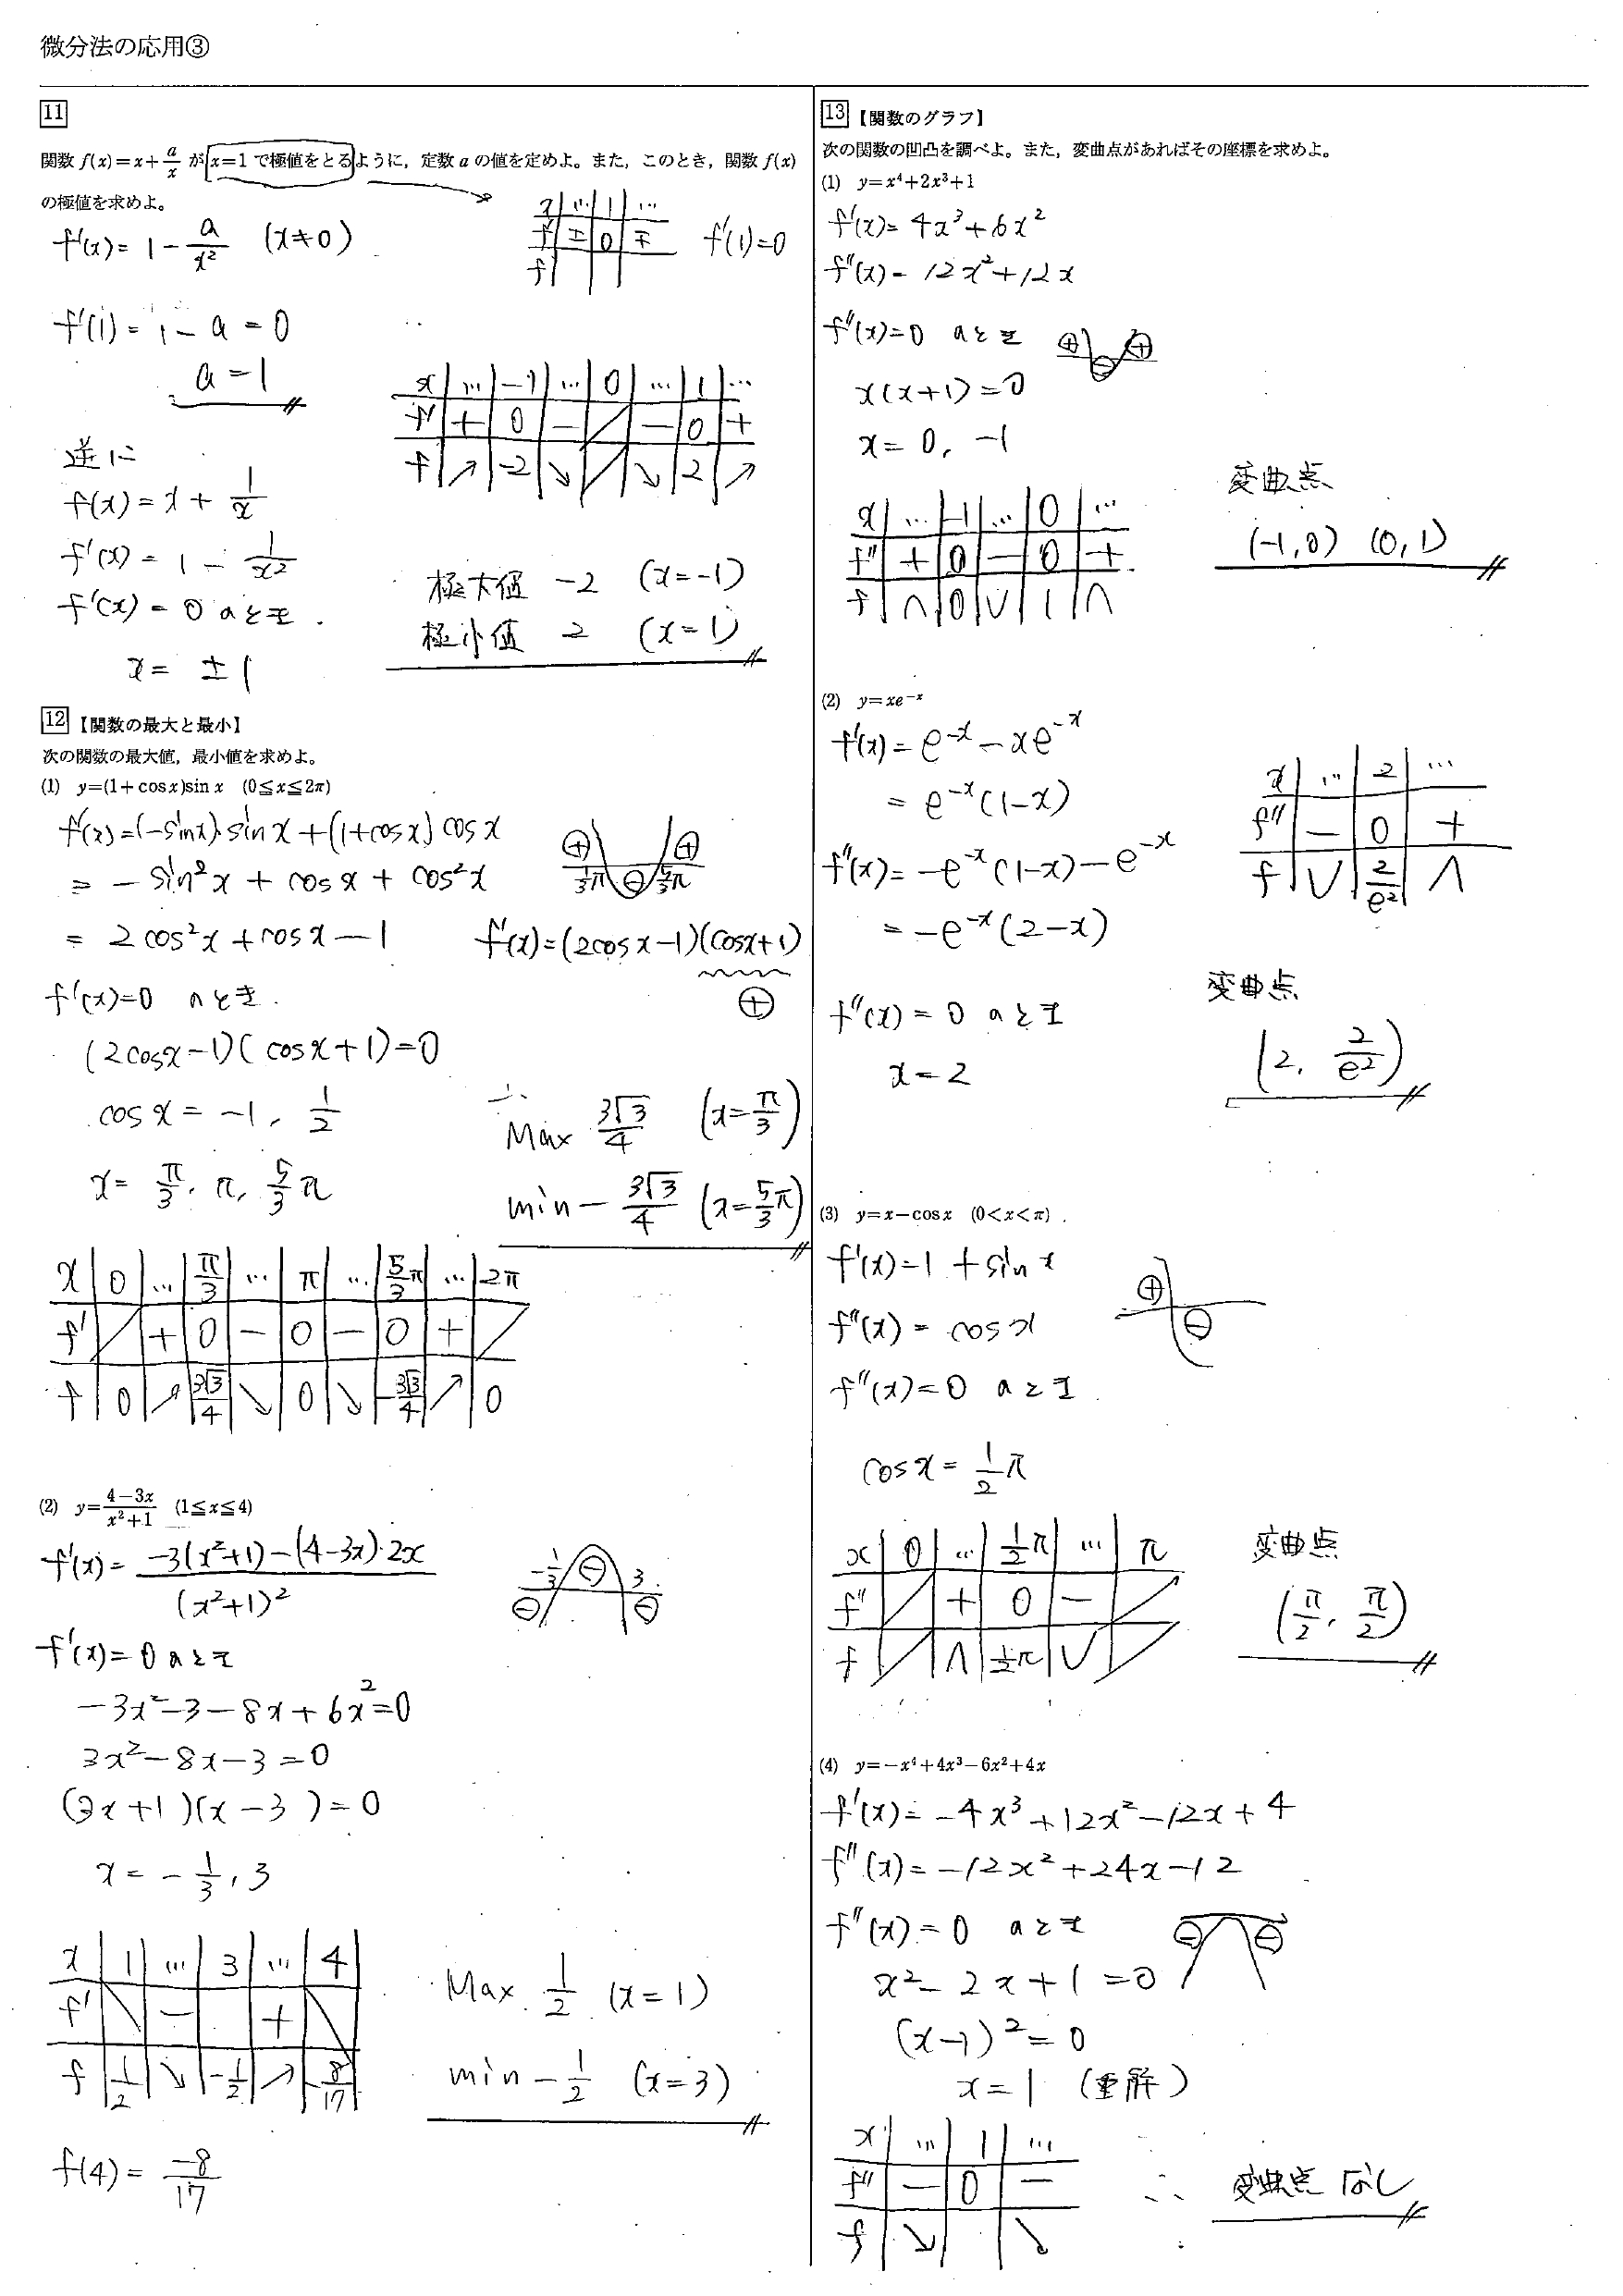 微分法の応用③
11
関数 f(x)=x+a/x が x=1 で極値をとるように，定数 a の値を定めよ。また，このとき，関数 f(x)
の極値を求めよ。
f'(x)= 1 - a/x² (x≠0)
x | … | 1 | …
f' | ± | 0 | ∓
f
f'(1)=0
f'(1)= 1 - a = 0
a = 1
逆に
f(x)= x + 1/x
f'(x)= 1 - 1/x²
f'(x)= 0 のとき.
x = ±1
x | … | -1 | … | 0 | … | 1 | …
f' | + | 0 | - | ／ | - | 0 | +
f | ↗ | -2 | ↘ | ／ | ↘ | 2 | ↗
極大値 -2 (x=-1)
極小値 2 (x=1)
12 【関数の最大と最小】
次の関数の最大値，最小値を求めよ。
(1) y=(1+cos x)sin x (0≦x≦2π)
f'(x)=(-sin x)·sin x+(1+cos x) cos x
= -sin²x + cos x + cos²x
= 2cos²x + cos x - 1
⊕ ⊕
1/3π ⊖ 5/3π
f'(x)=(2cos x-1)(cos x+1)
⊕
f'(x)=0 のとき.
(2cos x-1)(cos x+1)=0
cos x = -1, 1/2
x = π/3, π, 5/3 π
∴
Max 3√3/4 (x=π/3)
min - 3√3/4 (x=5/3π)
x | 0 | … | π/3 | … | π | … | 5/3π | … | 2π
f' | ／ | + | 0 | - | 0 | - | 0 | + | ／
f | 0 | ↗ | 3√3/4 | ↘ | 0 | ↘ | -3√3/4 | ↗ | 0
(2) y=4-3x/x²+1 (1≦x≦4)
f'(x)= -3(x²+1)-(4-3x)·2x/(x²+1)²
-1/3 ⊖ 3
⊖ ⊖
f'(x)=0 のとき
-3x²-3-8x+6x²=0
3x²-8x-3=0
(3x+1)(x-3)=0
x = -1/3, 3
x | 1 | … | 3 | … | 4
f' | ＼ | - | | + | ＼
f | 1/2 | ↘ | -1/2 | ↗ | -8/17
Max. 1/2 (x=1)
min - 1/2 (x=3)
f(4)= -8/17
13 【関数のグラフ】
次の関数の凹凸を調べよ。また，変曲点があればその座標を求めよ。
(1) y=x⁴+2x³+1
f'(x)= 4x³+6x²
f''(x)= 12x²+12x
f''(x)=0 のとき
⊕ ⊖ ⊕
x(x+1)=0
x= 0, -1
x | … | -1 | … | 0 | …
f'' | + | 0 | - | 0 | +
f | ∩ | 0 | ∪ | 1 | ∩
変曲点
(-1,0) (0,1)
(2) y=xe⁻ˣ
f'(x)= e⁻ˣ - xe⁻ˣ
= e⁻ˣ(1-x)
f''(x)= -e⁻ˣ(1-x) - e⁻ˣ
= -e⁻ˣ(2-x)
x | … | 2 | …
f'' | - | 0 | +
f | ∪ | 2/e² | ∩
f''(x)= 0 のとき
x = 2
変曲点
(2, 2/e²)
(3) y=x-cos x (0<x<π)
f'(x)=1 + sin x
f''(x)= cos x
f''(x)=0 のとき
⊕
⊖
cos x = 1/2 π
x | 0 | … | 1/2π | … | π
f'' | ／ | + | 0 | - | ／
f | ／ | ∩ | 1/2π | ∪ | ／
変曲点
(π/2, π/2)
(4) y=-x⁴+4x³-6x²+4x
f'(x)= -4x³+12x²-12x+4
f''(x)= -12x²+24x-12
f''(x)=0 のとき
⊖ ⊖
x²-2x+1=0
(x-1)²=0
x=1 (重解)
x | … | 1 | …
f'' | - | 0 | -
f | ↘ | | ↘
∴ 変曲点 なし